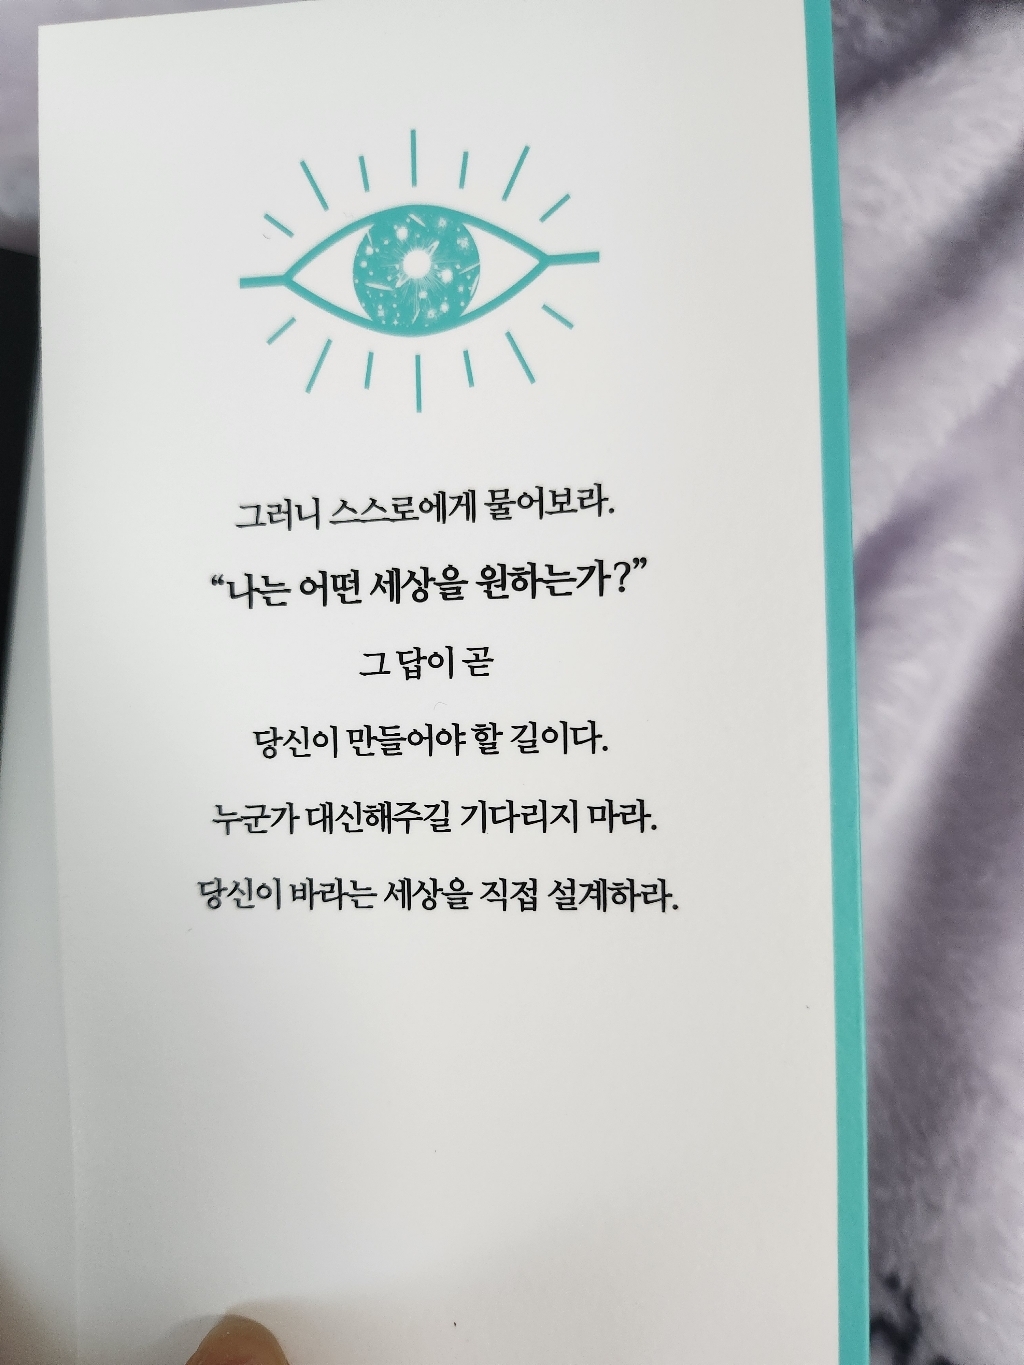 그러니 스스로에게 물어보라.
“나는 어떤 세상을 원하는가?”
그 답이 곧
당신이 만들어야 할 길이다.
누군가 대신해주길 기다리지 마라.
당신이 바라는 세상을 직접 설계하라.